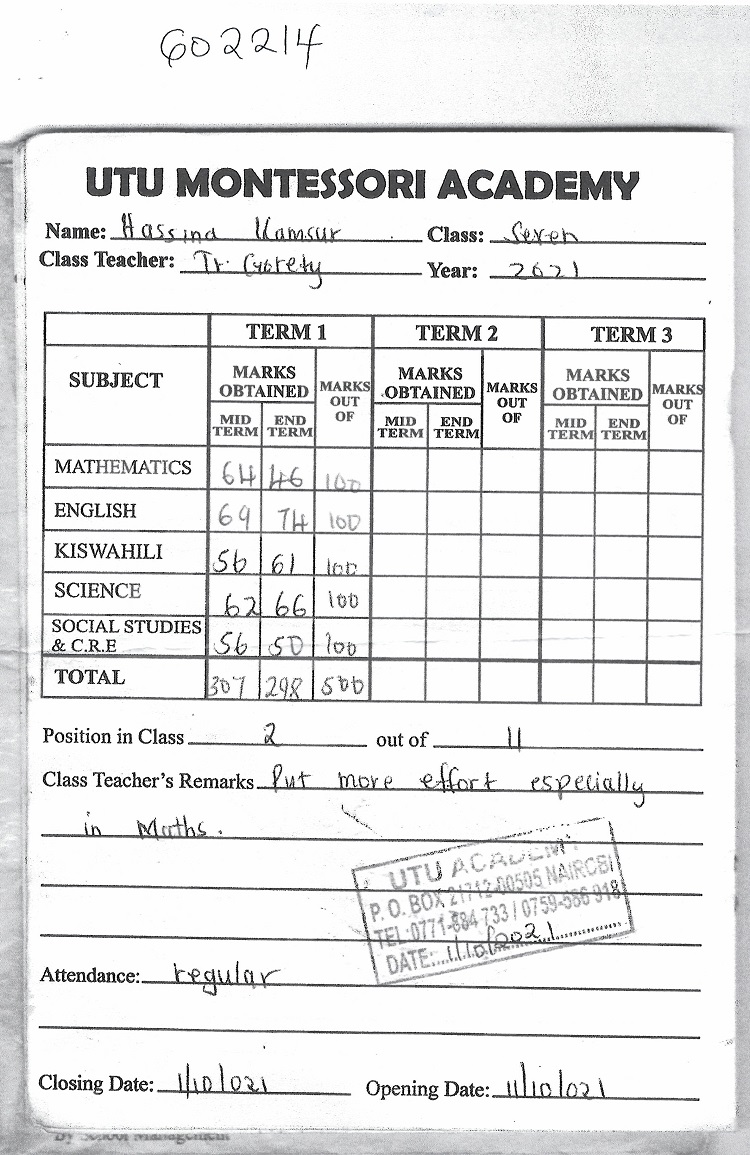 602214
UTU MONTESSORI ACADEMY
Name: Hassina Kamsur Class: Seven
Class Teacher: Tr. Year: 2021
TERM 1 TERM 2 TERM 3
SUBJECT MARKS OBTAINED MARKS OUT OF MARKS OBTAINED MARKS OUT OF MARKS OBTAINED MARKS OUT OF
MID TERM END TERM MID TERM END TERM MID TERM END TERM
MATHEMATICS 64 46 100
ENGLISH 69 74 100
KISWAHILI 56 61 100
SCIENCE 62 66 100
SOCIAL STUDIES & C.R.E 56 50 100
TOTAL 307 298 500
Position in Class 2 out of 11
Class Teacher's Remarks Put more effort especially
in Maths.
UTU ACADEMY
P. O. BOX 21712-00505 NAIROBI
TEL:0771-884 733 / 0759-586 918
DATE:...1/10/2021
Attendance: regular
Closing Date: 1/10/021 Opening Date: 11/10/021
By School Management